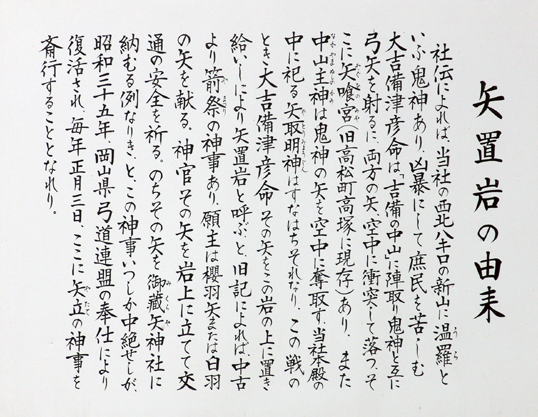 矢置岩の由来
社伝によれば、当社の西北八キロの新山に温羅と
いふ鬼神あり、凶暴にして庶民を苦しむ
大吉備津彦命は、吉備の中山に陣取り鬼神と互に
弓矢を射るに、両方の矢、空中に衝突して落つ、そ
こに矢喰宮(旧高松町高塚に現存)あり、また
中山主神は鬼神の矢を空中に奪取す、当社本殿の
中に祀る矢取明神はすなはちそれなり、この戦の
とき大吉備津彦命その矢をこの岩の上に置き
給いしにより矢置岩と呼ぶと、旧記によれば、中古
より箭祭の神事あり、願主は櫻羽矢または白羽
の矢を献る、神官その矢を岩上に立てて交
通の安全を祈る、のちその矢を御蔵矢神社に
納むる例なりき、と、この神事いつしか中絶せしが、
昭和三十五年、岡山県弓道連盟の奉仕により
復活され、毎年正月三日、ここに矢立の神事を
斎行することとなれり。